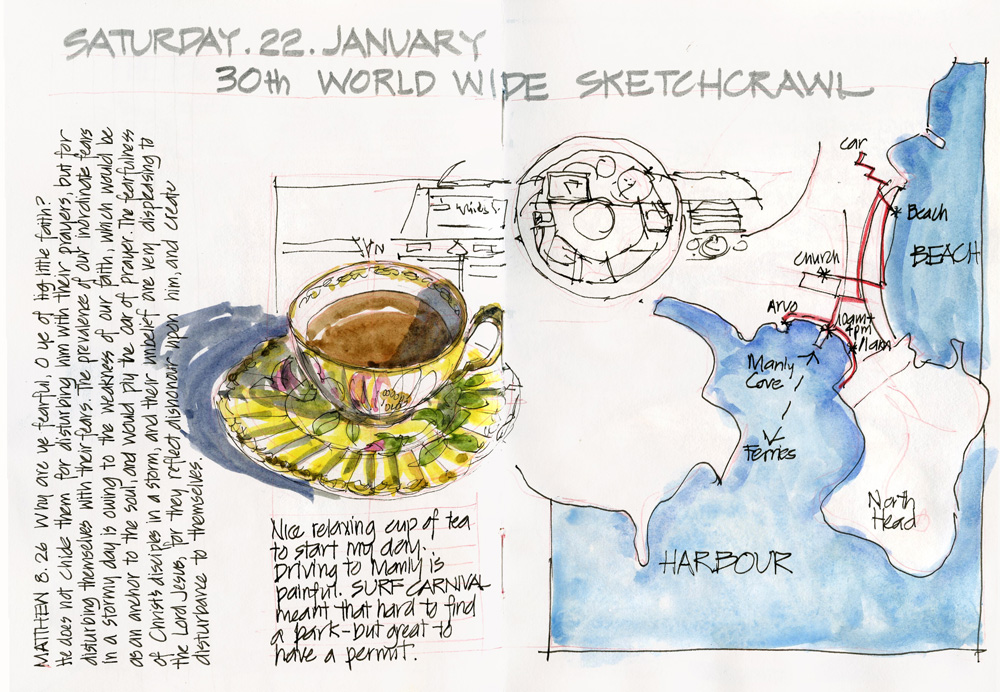 SATURDAY. 22. JANUARY
30th WORLD WIDE SKETCHCRAWL
MATTHEW 8. 26 Why are ye fearful, O ye of little faith?
He does not chide them for disturbing him with their prayers, but for
disturbing themselves with their fears. The prevalence of our inordinate fears
in a stormy day is owing to the weakness of our faith, which would be
as an anchor to the soul, and would ply the oar of prayer. The fearfulness
of Christ's disciples in a storm, and their unbelief are very displeasing to
the Lord Jesus, for they reflect dishonour upon him, and create
disturbance to themselves.
Nice relaxing cup of tea
to start my day.
Driving to Manly is
painful. SURF CARNIVAL
meant that hard to find
a park - but great to
have a permit.
car
Beach
BEACH
church
Arvo
10am +
4pm
11am
Manly
Cove
Ferries
North
Head
HARBOUR